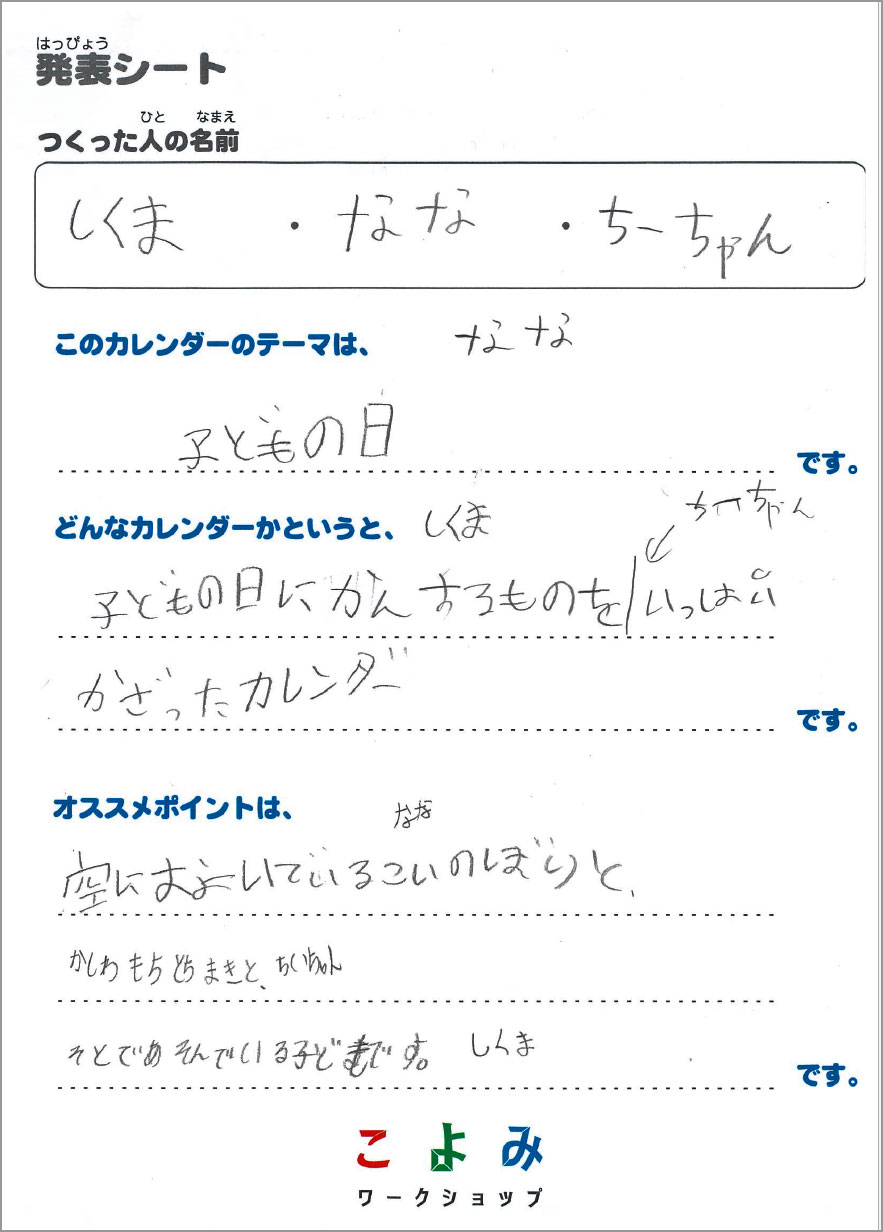 はっぴょう
発表シート
ひと なまえ
つくった人の名前
しくま ・ なな ・ ちーちゃん
このカレンダーのテーマは、 なな
子どもの日 です。
どんなカレンダーかというと、 しくま ちーちゃん
子どもの日にかんするものを いっぱい
かざったカレンダー です。
オススメポイントは、 なな
空におよいでいるこいのぼりと、
かしわもちとちまきと、ちいちゃん
そとであそんでいる子どもです。 しくま です。
こよみ
ワークショップ